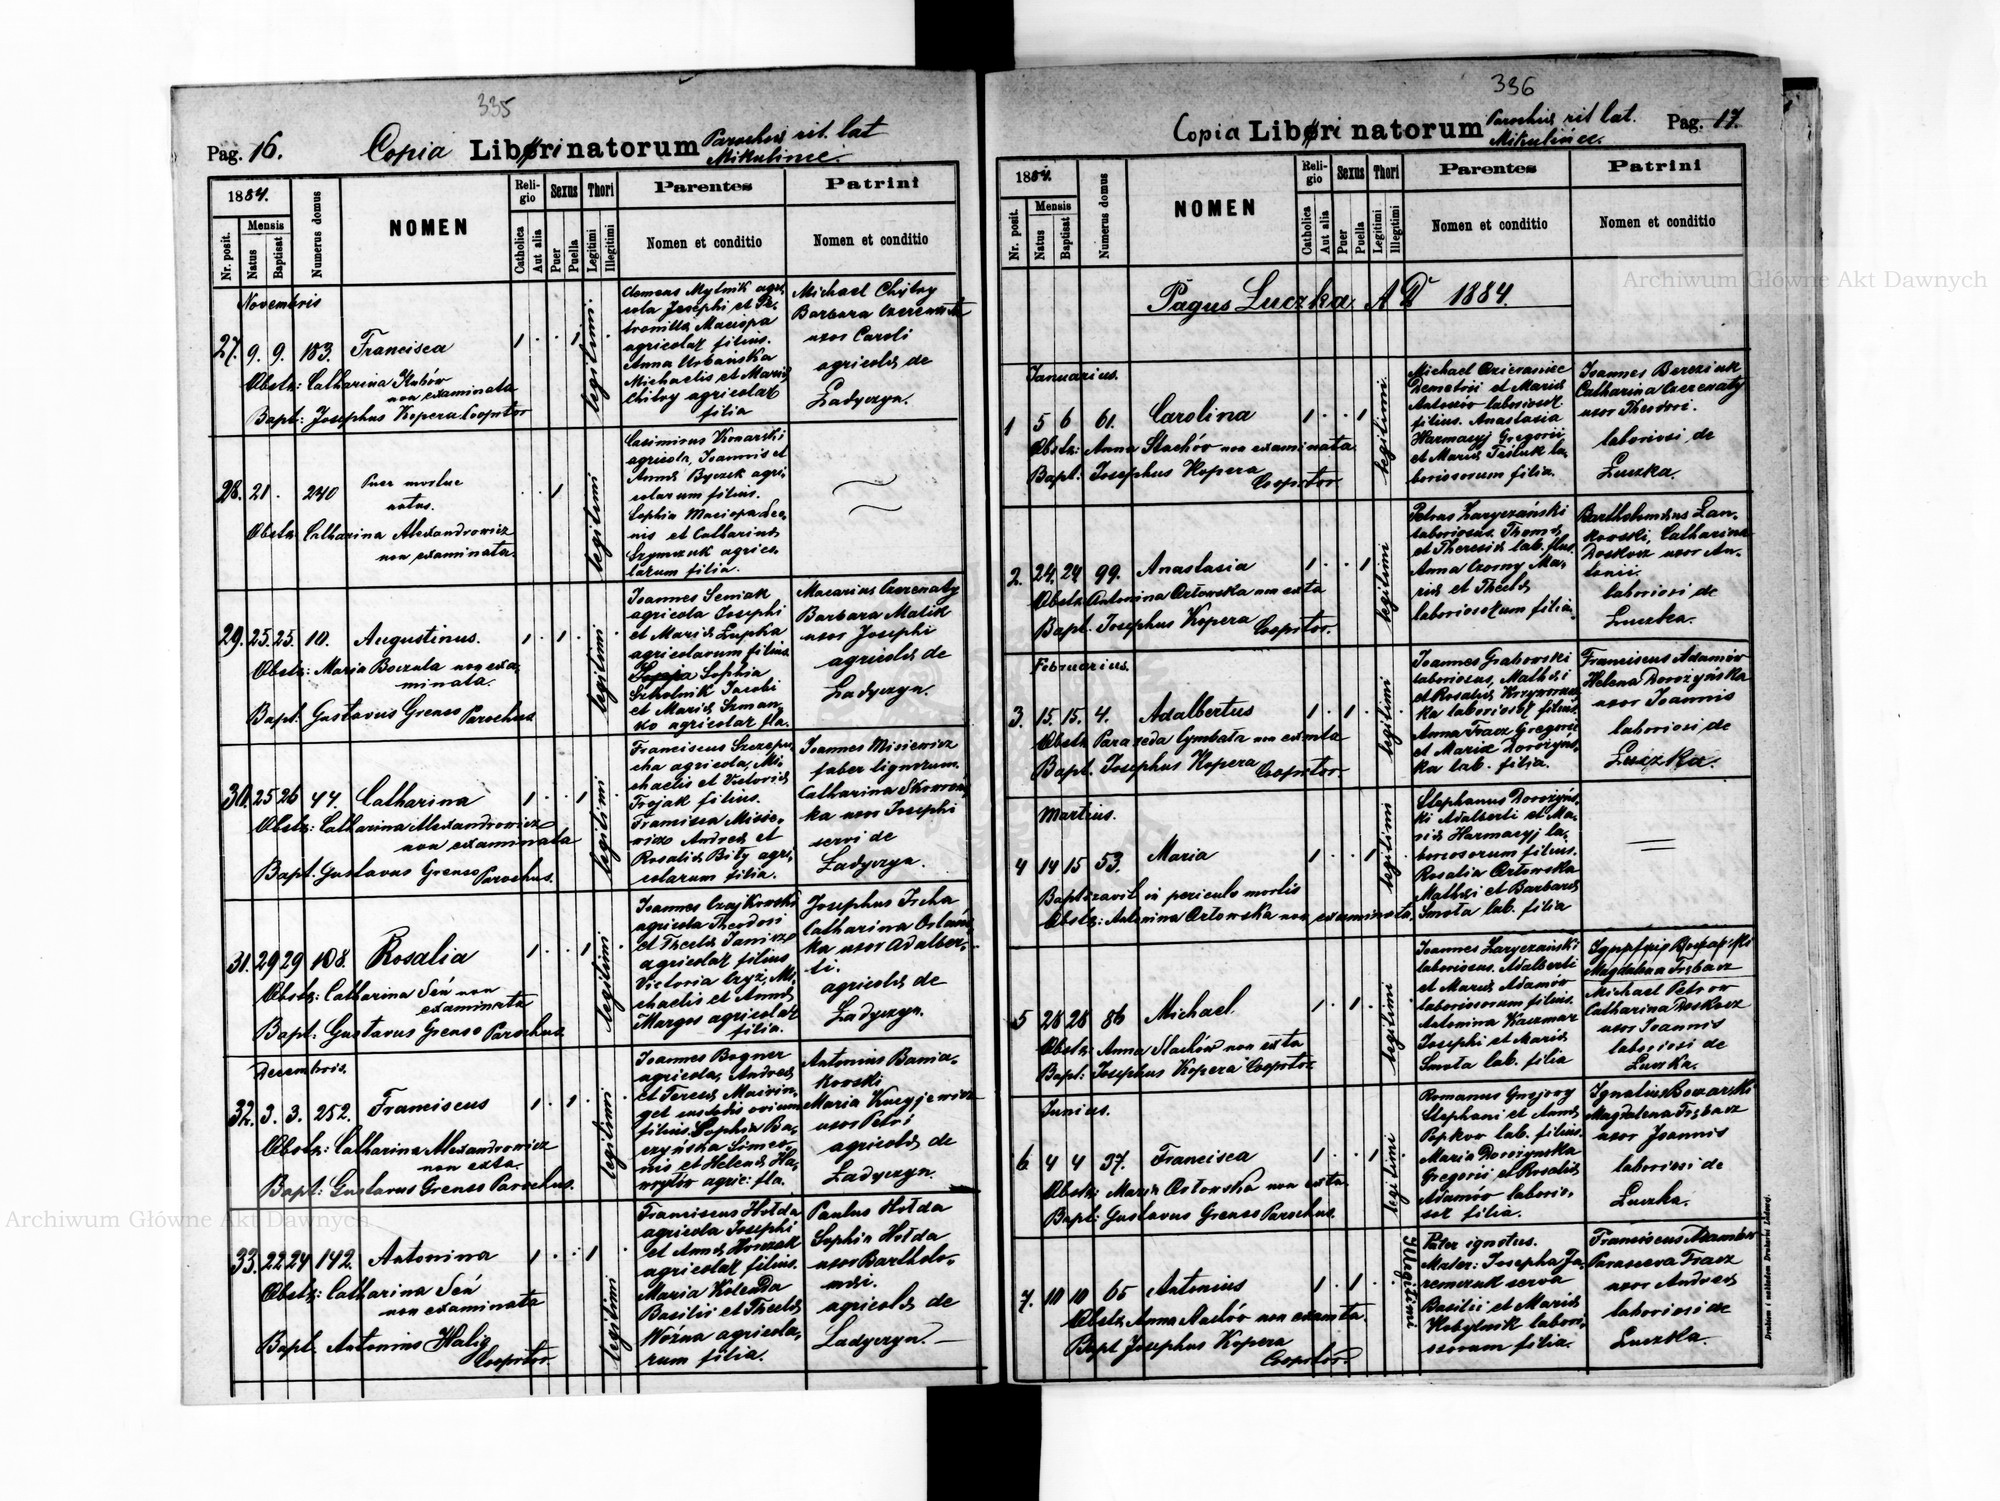 335
Pag. 16. Copia Libri natorum Parochiæ rit. lat
Mikulince.
1884.
Mensis
Nr. posit.
Natus
Baptisat
Numerus domus
NOMEN
Religio
Catholica
Aut alia
Sexus
Puer
Puella
Thori
Legitimi
Illegitimi
Parentes
Nomen et conditio
Patrini
Nomen et conditio
Novembris
27. 9. 9. 183. Francisca
Obstz: Catharina Kubów
non examinata
Bapt: Josephus Kopera Cooprtor
legitimi.
Clemens Mytnik agri,
cola Josephi et Pe,
tronillæ Maciopa
agricolar filius.
Anna Urbańska
Michaelis et Mariæ
Chitry agricolar
filia
Michael Chitry
Barbara Czerenaty
uxor Caroli
agricolæ de
Ładyczyn.
28. 21. 240 Puer mortue
natus.
Obstz Catharina Alexandrowicz
non examinata.
legitimi
Casimirus Konarski
agricola, Joannis et
Annæ Byczek agri,
colarum filius.
Sophia Maciopa Leo,
nis et Catharinæ
Szymczuk agrico,
larum filia.
29. 25. 25. 10. Augustinus.
Obstz: Maria Boczula non exa,
minata.
Bapt. Gustavus Grenso Parochus
legitimi
Joannes Seniak
agricola Josephi
et Mariæ Łupka
agricolarum filius.
Sophia
Szkolnik Jacobi
et Mariæ Szman,
ko agricolar fla.
Macarius Czerenaty
Barbara Malik
uxor Josephi
agricolæ de
Ładyczyn.
30. 25 26 44. Catharina
Obstz: Catharina Alexandrowicz
non examinata
Bapt. Gustavus Grenso Parochus.
legitimi
Franciscus Szczepu,
cha agricola, Mi,
chaelis et Victoriæ
Trojak filius.
Francisca Misie,
wicz Andreæ et
Rosaliæ Bity agri,
colarum filia.
Joannes Misiewicz
faber lignorum.
Catharina
ka uxor Josephi
servi de
Ładyczyn.
31. 29 29 108. Rosalia
Obstz: Catharina Seń non
examinata
Bapt: Gustavus Grenso Parochus
legitimi
Joannes Czajkowski
agricola Theodori
et Theclæ Janisz
agricolar filius
Victoria Czyz, Mi,
chaelis et Annæ
Margos agricolar
filia.
Josephus Ircha
Catharina
ka uxor Adalber,
ti.
agricolæ de
Ładyczyn.
Decembris.
32. 3. 3. 252. Franciscus
Obstz: Catharina Alexandrowicz
non exta.
Bapt: Gustavus Grenso Parochus.
legitimi
Joannes Bogner
agricola, Andreæ
et Teresæ Mairin,
get custodis ovium
filius. Sophia Ba,
czyńska Simeo,
nis et Helenæ Ha,
wrylów agric: fla.
Antonius Bania,
kowski
Maria
uxor Petri
agricolæ de
Ładyczyn.
33. 22 24 142. Antonina
Obstz: Catharina Seń
non examinata
Bapt. Antonius Halig
Cooprtor
legitimi
Franciscus Hołda
agricola Josephi
et Annæ Howzak
agricolar filius.
Maria Kolenda
Basilii et Theclæ
Woźna agricola,
rum filia.
Paulus Hołda
Sophia Hołda
uxor Bartholo,
mæi.
agricolæ de
Ładyczyn.
336
Copia Libri natorum Parochiæ rit lat. Pag. 17.
Mikulince.
1884.
Mensis
Nr. posit.
Natus
Baptisat
Numerus domus
NOMEN
Religio
Catholica
Aut alia
Sexus
Puer
Puella
Thori
Legitimi
Illegitimi
Parentes
Nomen et conditio
Patrini
Nomen et conditio
Pagus Luczka A Dⁱ 1884.
Januarius.
1 5 6 61. Carolina
Obstz: Anna Stachów non examinata.
Bapt: Josephus Kopera
Cooprtor
legitimi.
Michael
Demetrii et Mariæ
Antonów laboriosor
filius. Anastasia
Harmasyj Gregorii
et Mariæ Teśluk la,
boriosorum filia.
Joannes Bereziuk
Catharina Czerenaty
uxor Theodori.
laboriosi de
Łuczka.
2. 24. 24 99. Anastasia
Obstz Antonina Orłowska non exta
Bapt. Josephus Kopera
Cooprtor.
legitimi
Petrus Zaryczański
laboriosus. Thomæ,
et Theresiæ lab. flus.
Anna Czorny Ma,
riæ et Theclæ
laboriosorum filia.
Bartholomæus Łan,
kowski, Catharina
Doskocz uxor An,
tonii.
laboriosi de
Łuczka.
Februarius.
3. 15. 15. 4. Adalbertus
Obstz Paraxeda Cymbała non examta
Bapt. Josephus Kopera Cooprtor
legitimi
Joannes Grabowski
laboriosus, Mathæi
et Rosaliæ
ka laboriosor filius.
Anna Fracz Gregorii
et Mariæ Dorożyńs,
ka lab. filia.
Franciscus Adamów
Helena Dorożyńska
uxor Joannis
laboriosi de
Łuczka.
Martius.
4 14 15 53. Maria
Baptizavit in periculo mortis
Obstz: Antonina Orłowska non examinata
legitimi
Stephanus Dorożyńs,
ki Adalberti et Ma,
riæ Harmasyj la,
boriosorum filius.
Rosalia Orłowska
Mathæi et Barbaræ
Smota lab. filia
5 28 28 86 Michael
Obstz: Anna Stachów non exta
Bapt: Josephus Kopera Cooprtor.
legitimi
Joannes Zaryczański
laboriosus. Adalberti
et Mariæ Adamów
laboriosorum filius.
Antonina Kaczmar
Josephi et Mariæ
Smota lab. filia
Magdalena Trębacz
Michael Petrow
Catharina Doskocz
uxor Joannis
laboriosi de
Łuczka.
Junius.
6 4 4 37. Francisca
Obstz: Maria Orłowska non exta.
Bapt: Gustavus Grenso Parochus.
legitimi
Romanus Gnyjowy
Stephani et Annæ
Popkow lab. filius.
Maria Dorożynska
Gregorii et Rosaliæ
Adamów laborio,
sor filia.
Ignatius Bowarski
Magdalena Trębacz
uxor Joannis
laboriosi de
Łuczka.
7. 10 10 65 Antonius
Obstz Anna Stachów non examta.
Bapt Josephus Kopera
Cooprtor
Illegitimi
Pater ignotus.
Mater: Josepha Ja,
remczuk serva
Basilii et Mariæ
Kobylnik labori,
osorum filia.
Franciscus Adamów
Parasceva Fracz
uxor Andreæ
laboriosi de
Łuczka.
Archiwum Główne Akt Dawnych
Archiwum Główne Akt Dawnych